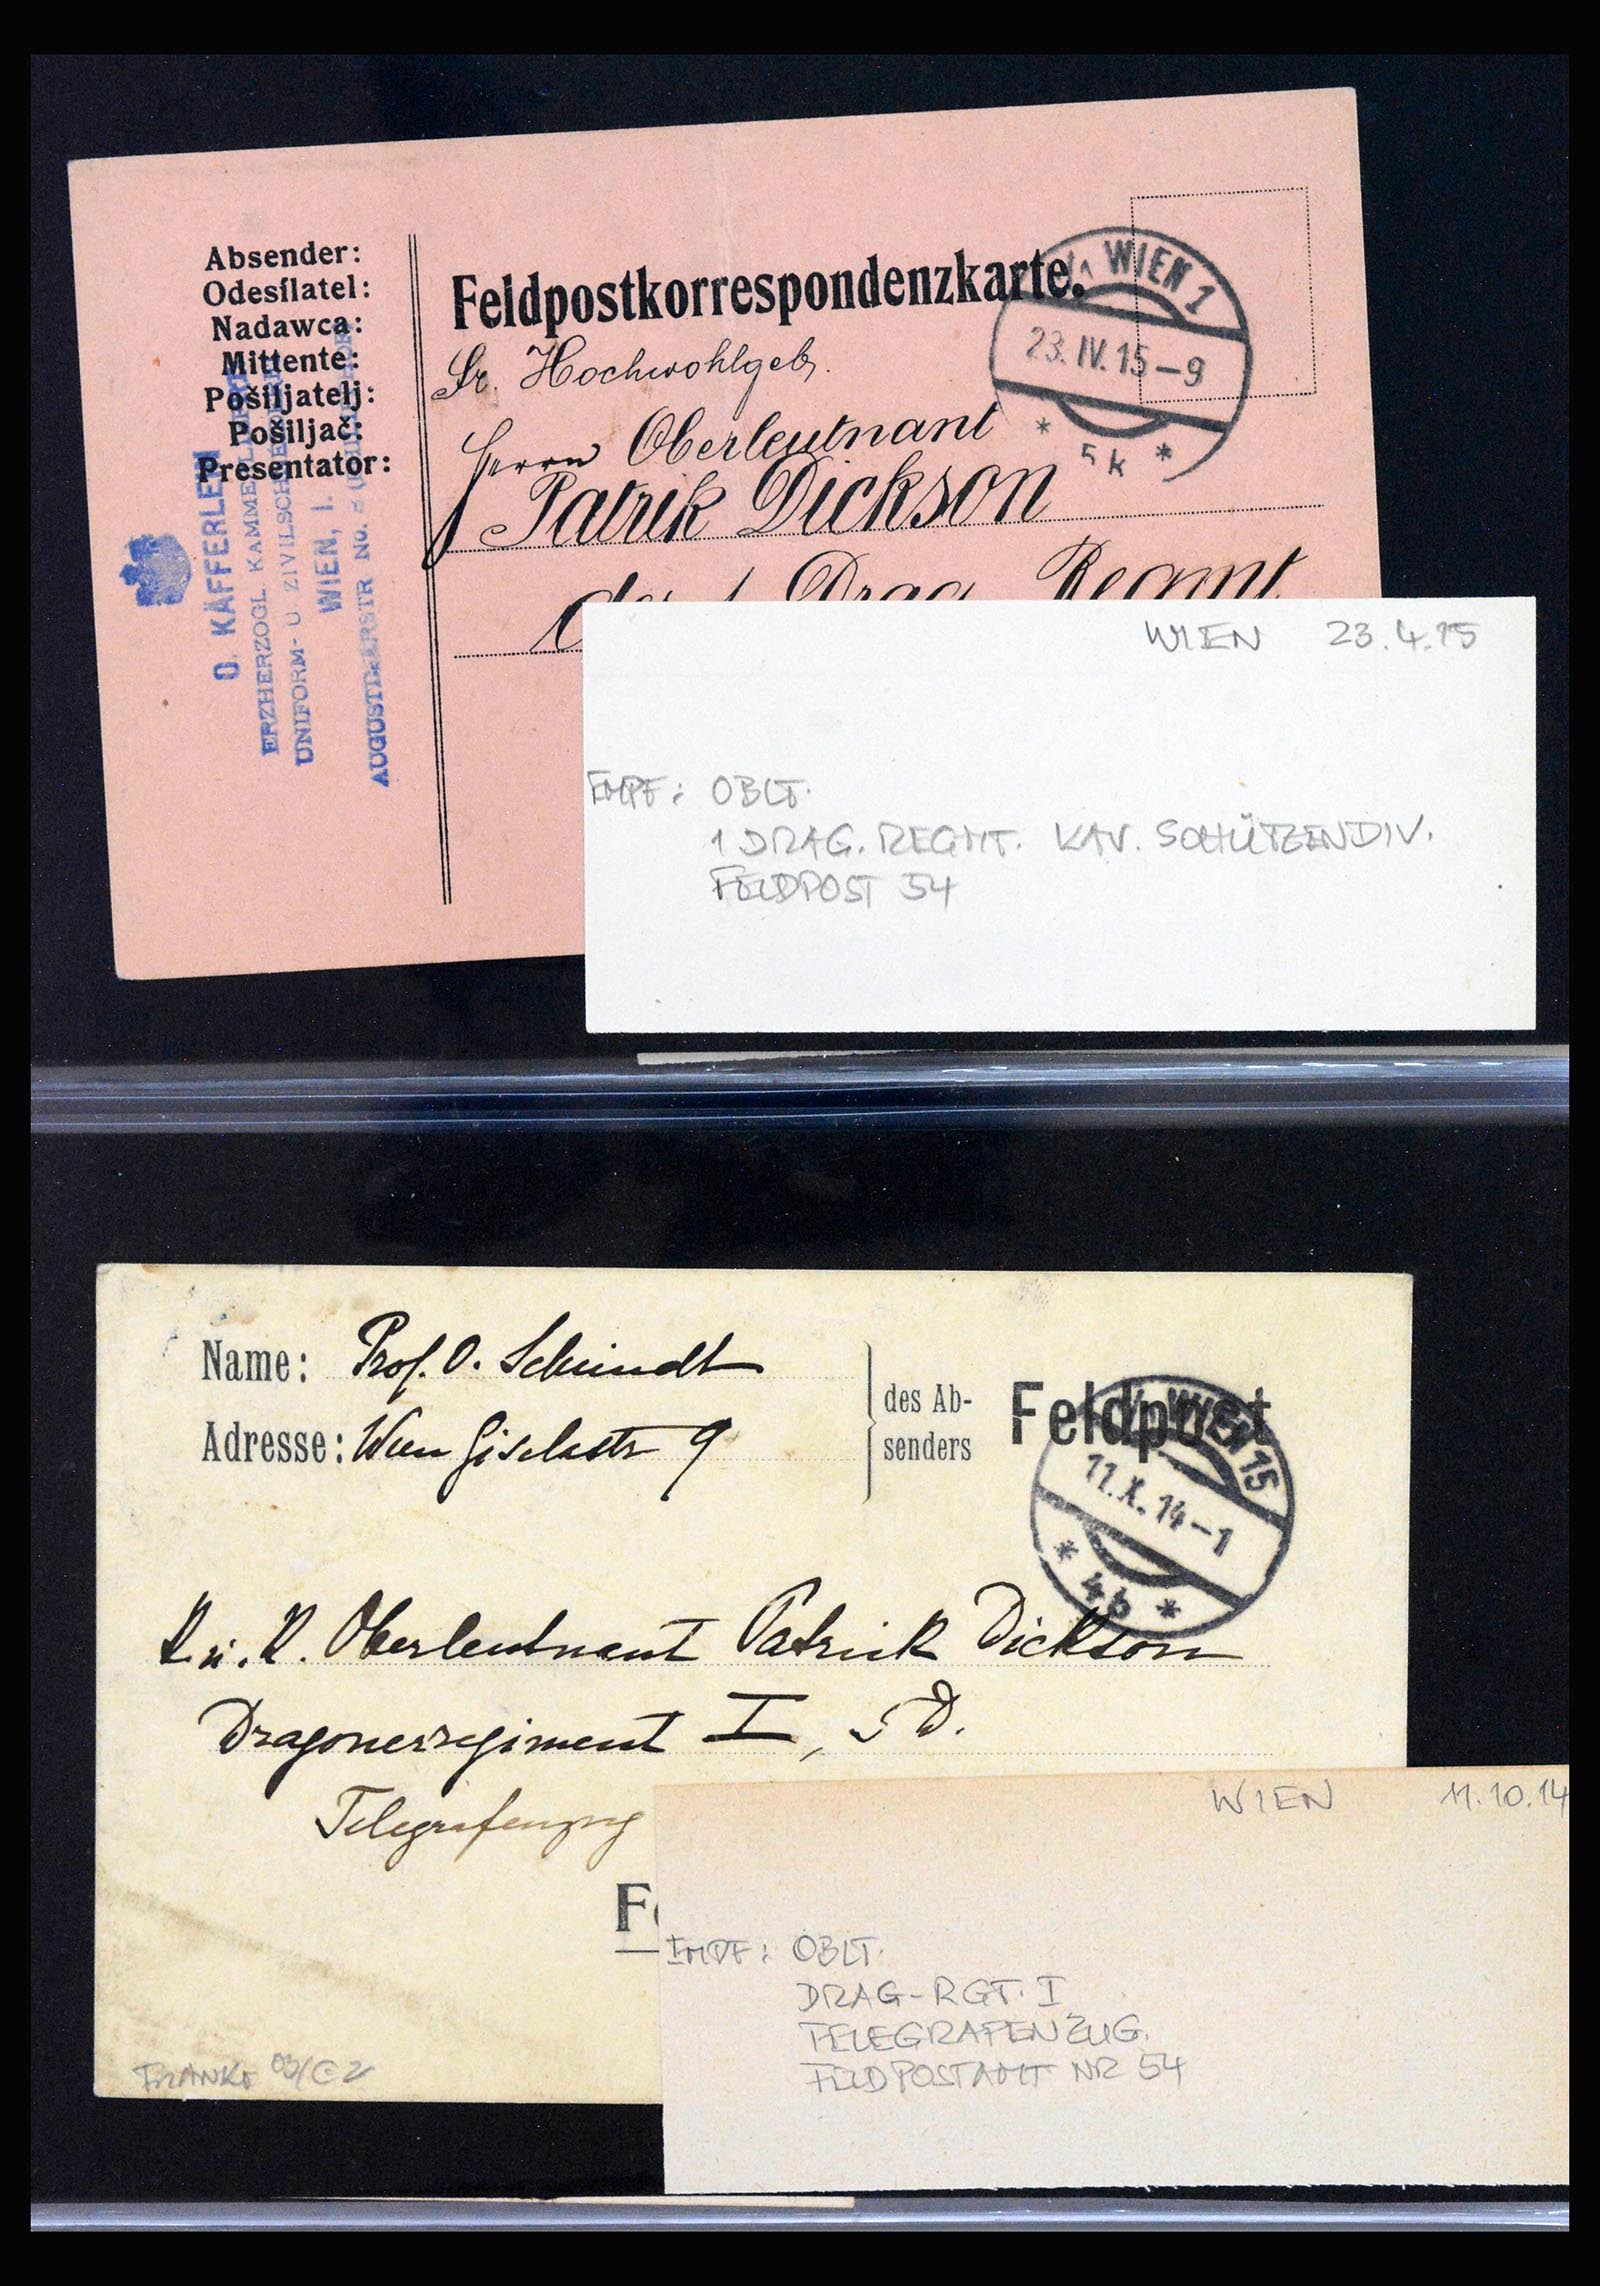 Absender:
Odesílatel:
Nadawca:
Mittente:
Pošiljatelj:
Pošiljač:
Presentator:
O. KÄFFERLEIN
ERZHERZOGL. KAMMER
UNIFORM- U. ZIVILSCH
WIEN, I.
AUGUSTINERSTR No. 8
Feldpostkorrespondenzkarte.
WIEN 1
23.IV.15-9
* 5k *
Sr. Hochwohlgeb.
Herrn Oberleutnant
Patrik Dickson
des 1. Drag. Regmt
WIEN 23.4.15
EMPF: OBLT.
1 DRAG. REGMT. KAV. SCHÜTZENDIV.
FELDPOST 54
Name: Prof. O. Schmidt
Adresse: Wien Giselastr 9
des Ab-
senders
Feldpost
WIEN 15
11.X.14-1
* 4b *
K. u. K. Oberleutnant Patrick Dickson
Dragonerregiment I, 5 D.
Telegrafenzug
F
WIEN 11.10.14
EMPF: OBLT.
DRAG-RGT. I
TELEGRAFENZUG.
FELDPOSTAMT NR 54
FRANKE